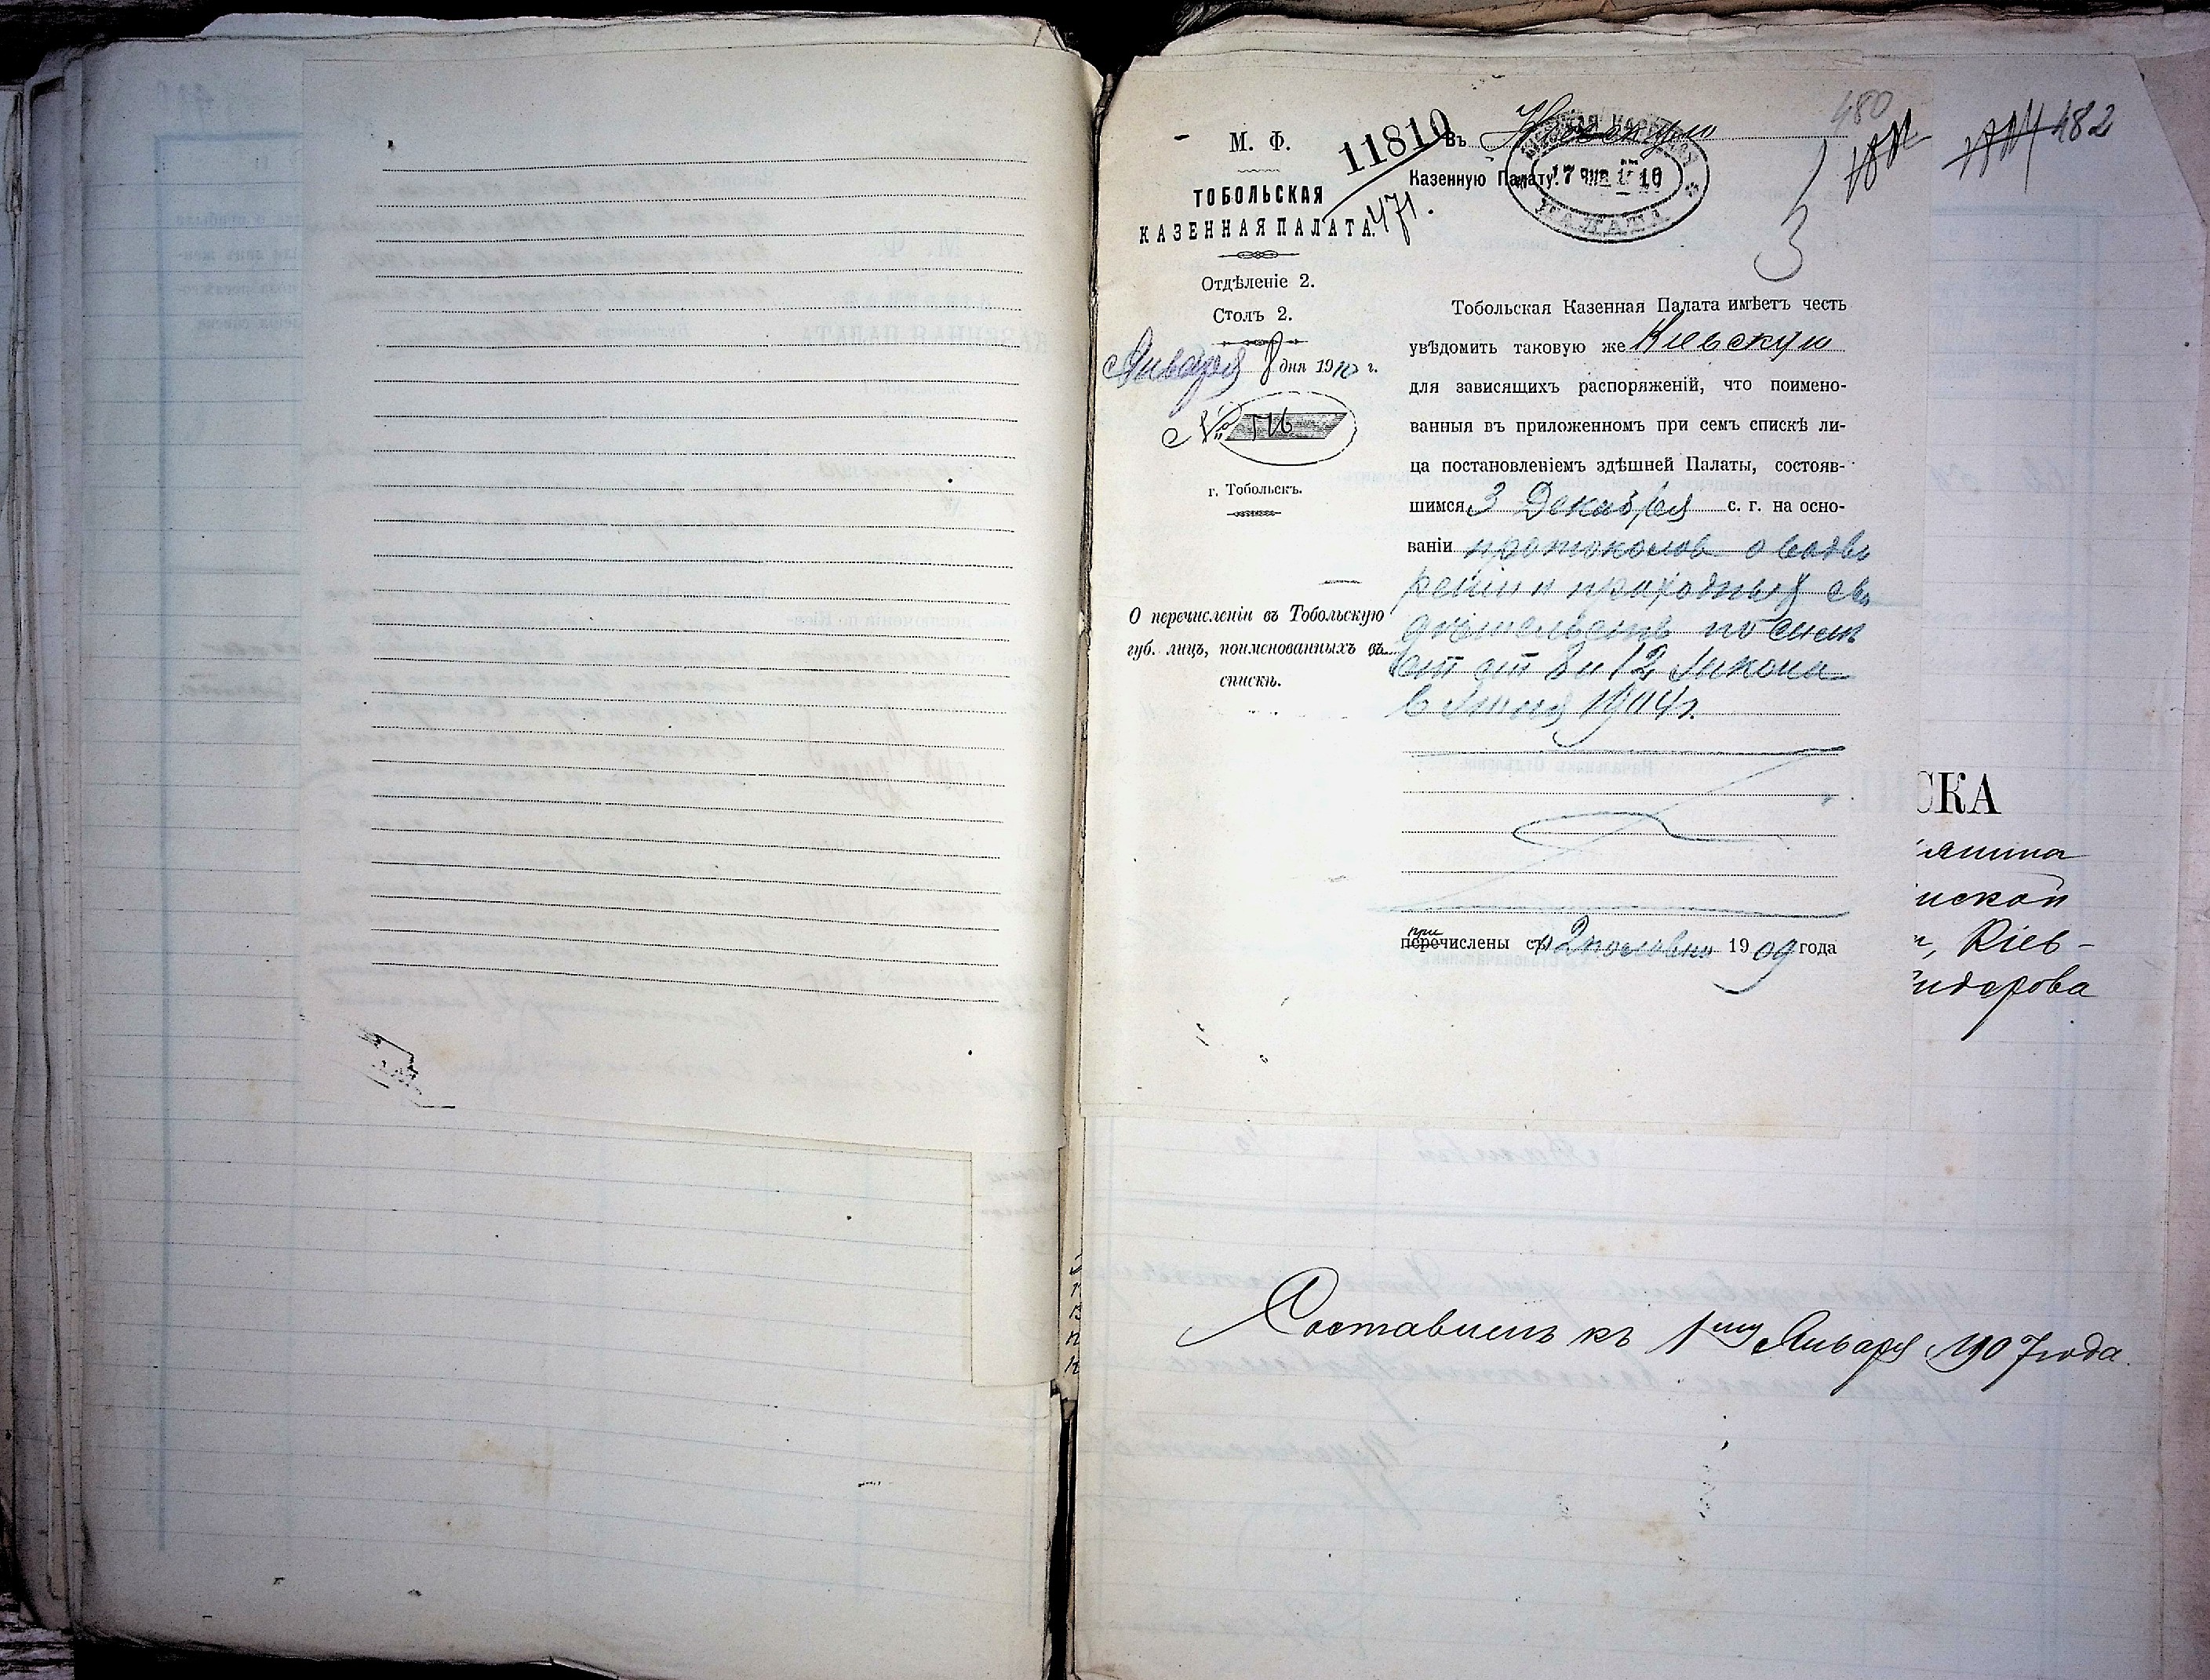 М. Ф.
ТОБОЛЬСКАЯ
КАЗЕННАЯ ПАЛАТА.
Отдѣленіе 2.
Столъ 2.
Января 8 дня 1910 г.
№
г. Тобольскъ.
О перечисленіи въ Тобольскую
губ. лицъ, поименованныхъ въ
спискѣ.
11810
471.
480
482
3
Въ Кіевскую
Казенную Палату.
17 ЯНВ 1910
ПАЛАТА
Тобольская Казенная Палата имѣетъ честь
увѣдомить таковую же Кіевскую
для зависящихъ распоряженій, что поимено-
ванныя въ приложенномъ при семъ спискѣ ли-
ца постановленіемъ здѣшней Палаты, состояв-
шимся 3 Декабря с. г. на осно-
ваніи протоколов о водво
реніи и проходных сви
дѣтельствъ по
от 8 и 12 Закона
6 Іюня 1904 г.
при
перечислены съ 2 половины 1909 года
СКА
янина
иской
и, Кіев-
ндерова
Составленъ къ 1му Января 1907 года.